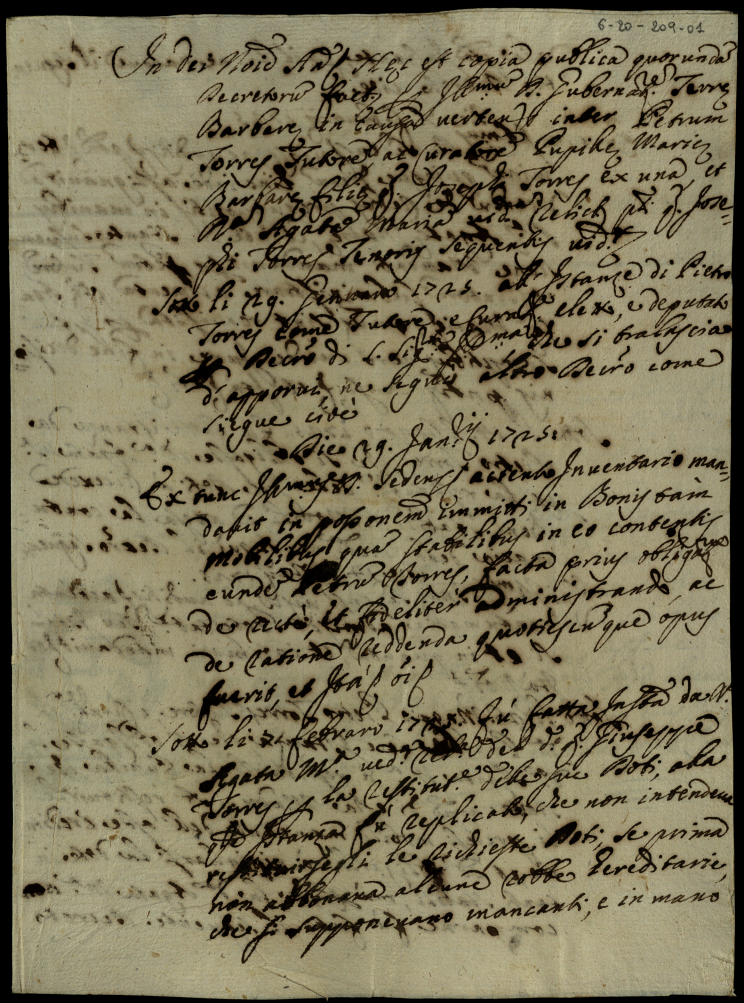 6-20-209-01
In Dei Noie Am̃ Hęc est copia publica quorunda
Decretorũ fact. Illmũ D. Gubernar. Terrę
Barbarę in causa verten. inter Petrum
Torres Tutorẽ ac Curatorẽ Pupillę Marię
Barbarę filię q. Joseph Torres ex una, et
Agatã Mariã vid. Relictã q. Jose=
phi Torres Tenoris sequentis vid.
Sotto li 29. Gennaro 1725. all' Istanze di Pietro
Torres come Tutore, e Curat. eletto, e deputato
Decrõ di che si tralascia
di apporui, ne seguì altro Decrõ come
siegue cioè
Die 29. Janrij 1725.
Ex tunc Illmus D. sedens Inventario man=
davit in possonem immitti in Bonis tam
mobilibus quã stabilibus in eo contentis
eundẽ Petrũ Torres, facta prius obligatne
de recte, et fideliter administrando, ac
de ratione reddenda quotiescunque opus
fuerit, et Ita
Sotto li Febraro Fù fatta Instã da
Agata Mª vedª del q. Giuseppe
Torres la restitutᵉ delle sue Doti, alla
Istanza fù replicato, che non intendeua
restituirsegli le richieste Doti, se prima
non alcune robbe hereditarie,
che si supponeuano mancanti, e in mano